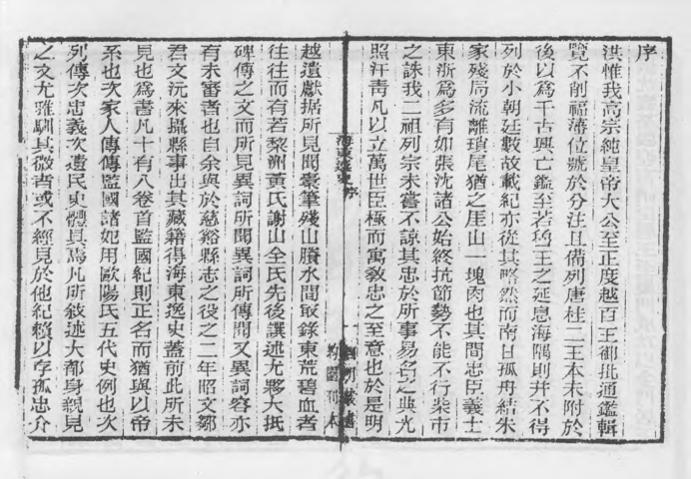 序
洪惟我高宗純皇帝大公至正度越百王御批通鑑輯
覽不削福藩位號於分注且備列唐桂二王本末附於
後以為千古興亡鑑至若魯王之延息海隅則并不得
列於小朝廷數故載紀亦從其略然而南日孤舟結朱
家殘局流離瑣尾猶之厓山一塊肉也其間忠臣義士
東浙為多有如張沈諸公始終抗節勢不能不行柴市
之誅我二祖列宗未嘗不諒其忠於所事易名之典光
照汗靑凡以立萬世臣極而寓敎忠之至意也於是明
海東逸史 序
一
四明叢書
約園刊本
越遺獻据所見聞橐筆殘山賸水間最錄東荒碧血者
往往而有若梨洲黃氏謝山全氏先後譔述尤夥大抵
碑傳之文而所見異詞所聞異詞所傳聞又異詞容亦
有未審者也自余與於慈谿縣志之役之二年昭文鄒
君文沅來攝縣事出其藏籍得海東逸史蓋前此所未
見也為書凡十有八卷首監國紀則正名而猶與以帝
系也次家人傳傳監國諸妃用歐陽氏五代史例也次
列傳次忠義次遺民史體具焉凡所敍述大都身親見
之文尤雅馴其微者或不經見於他紀籟以存孤忠介